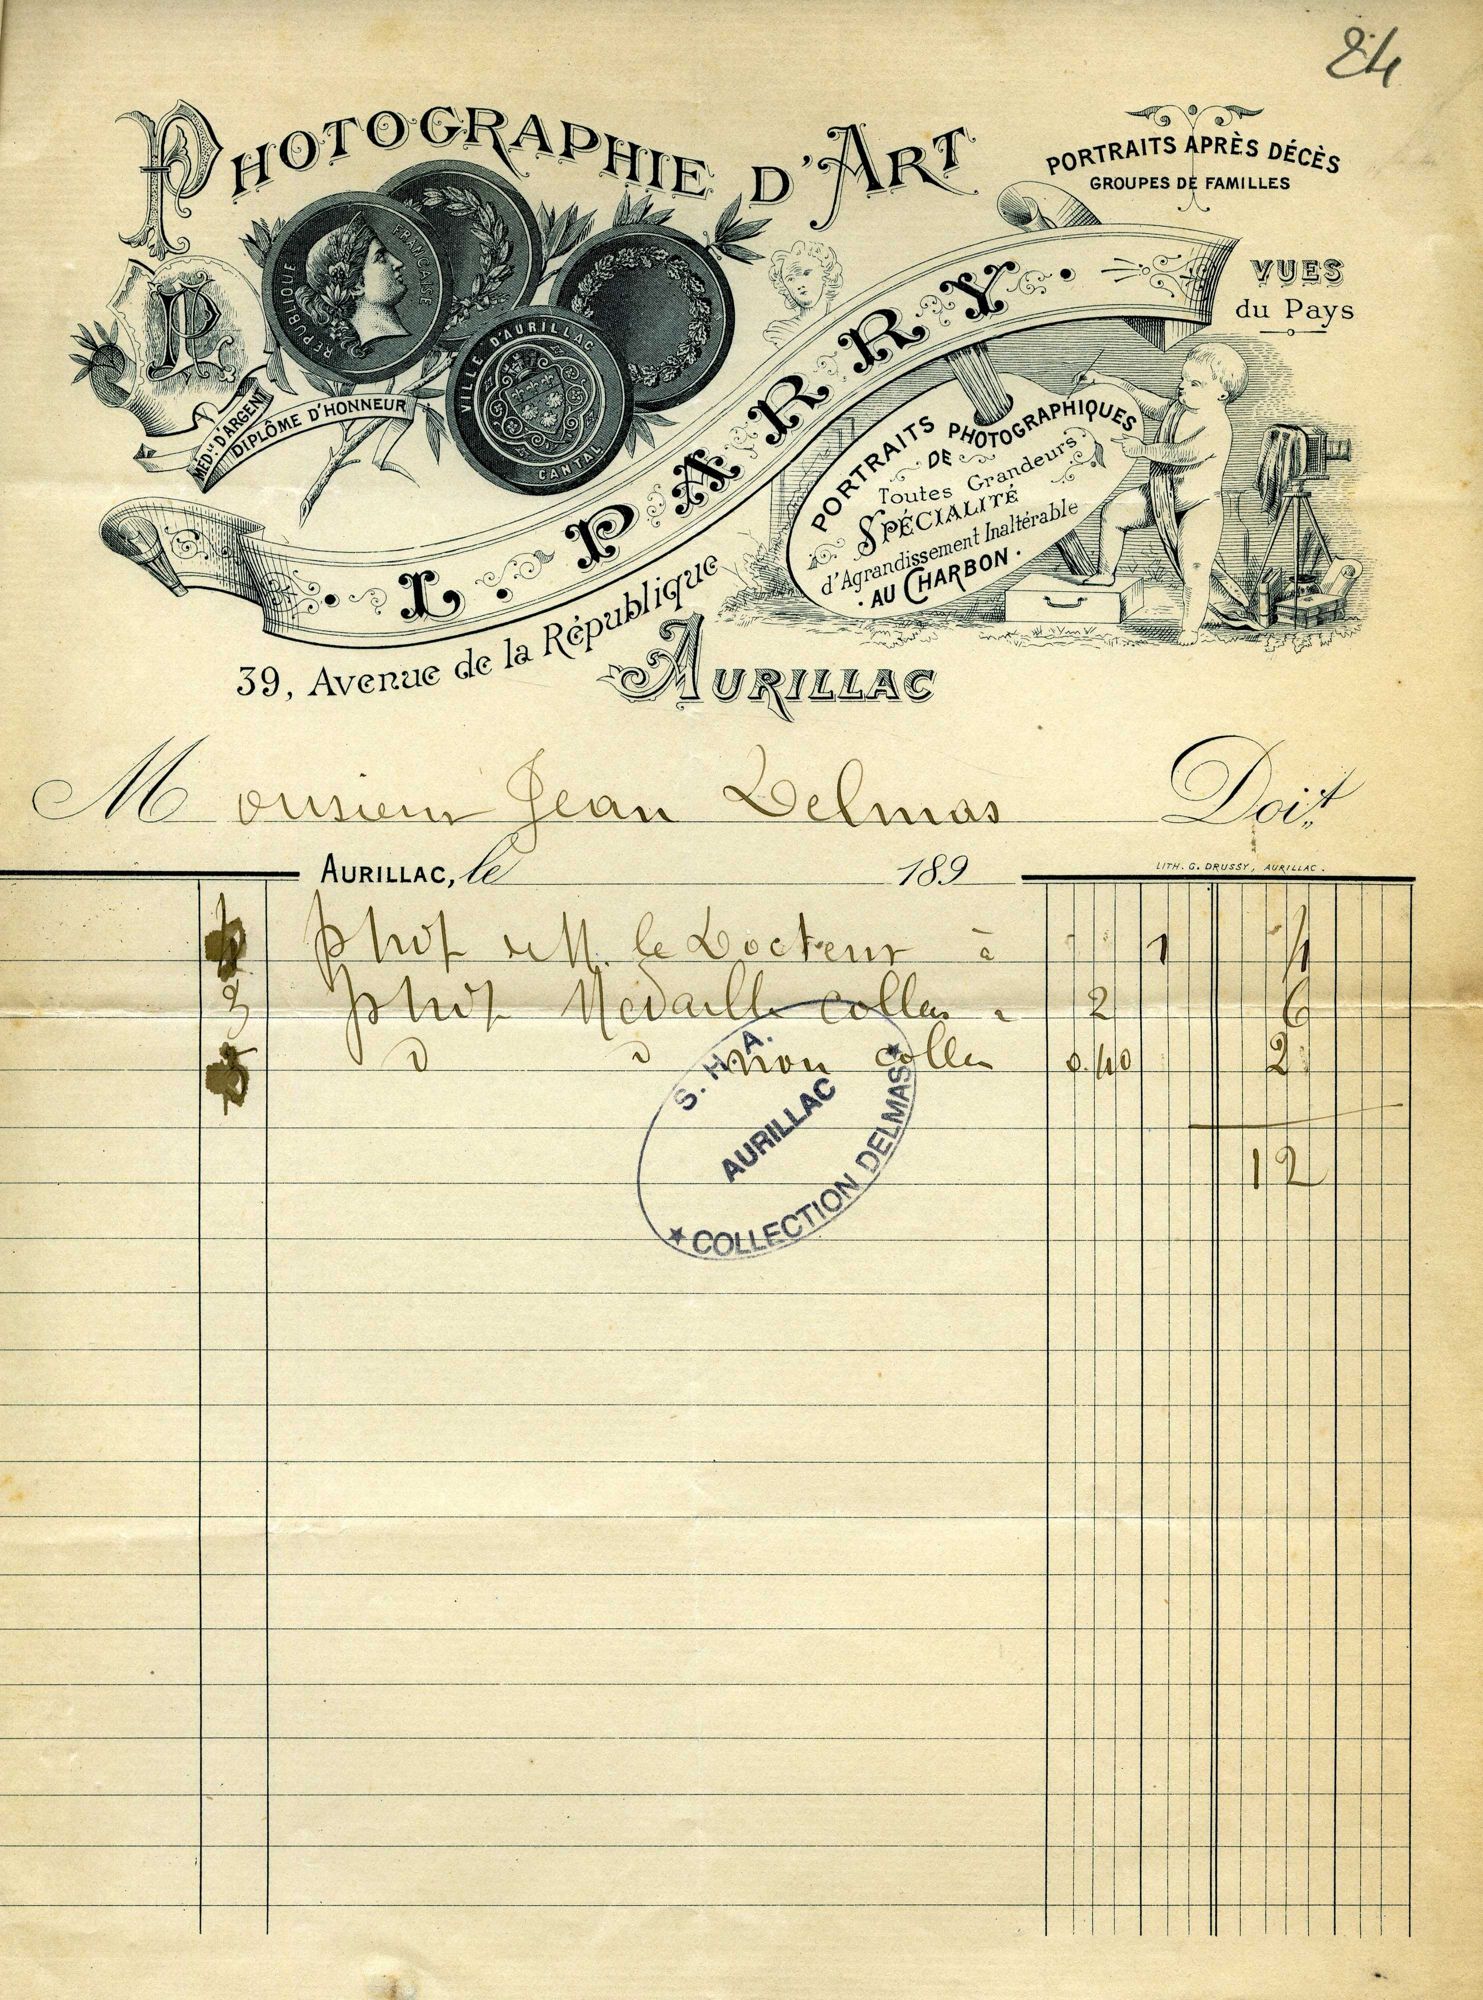 84
PHOTOGRAPHIE D'ART
PORTRAITS APRÈS DÉCÈS
GROUPES DE FAMILLES
VUES
du Pays
RÉPUBLIQUE FRANÇAISE
VILLE D'AURILLAC
CANTAL
P
MED: D'ARGENT
DIPLÔME D'HONNEUR
L. PARRY.
PORTRAITS PHOTOGRAPHIQUES
DE
Toutes Grandeurs
SPÉCIALITÉ
d'Agrandissement Inaltérable
AU CHARBON.
39, Avenue de la République
AURILLAC
Monsieur Jean Delmas Doit
AURILLAC, le 189
LITH. G. DRUSSY, AURILLAC.
4 phot de M. le Docteur à 1 4
3 phot Médaille collées à 2 6
d d non collées 0.40 2
12
S. H. A.
AURILLAC
COLLECTION DELMAS